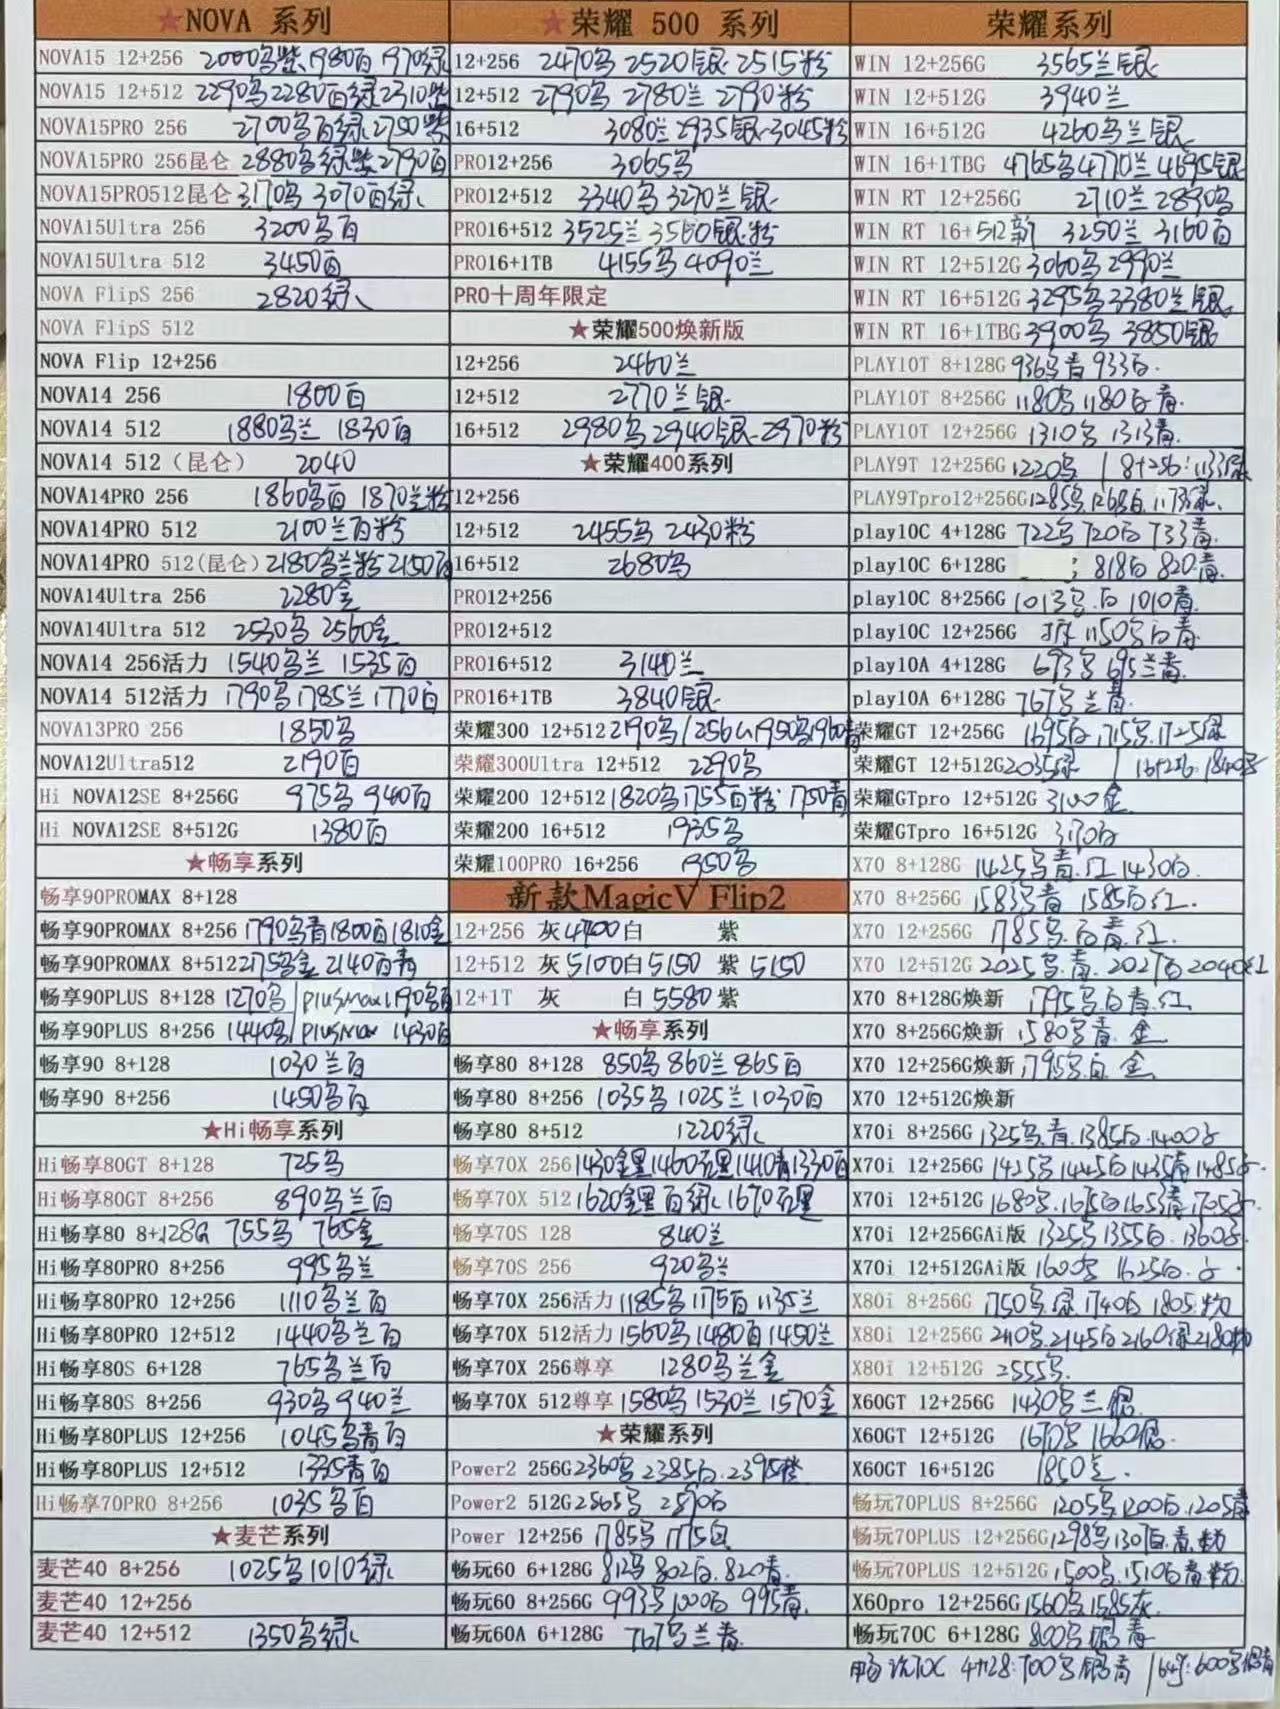 ★NOVA 系列
NOVA15 12+256 2000乌紫 1980白 1970绿
NOVA15 12+512 2290乌 2280白绿 2310紫
NOVA15PRO 256 2700乌白绿 2750紫
NOVA15PRO 256昆仑 2880乌绿紫 2790白
NOVA15PRO512昆仑 3170乌 3070白绿
NOVA15Ultra 256 3200乌白
NOVA15Ultra 512 3450白
NOVA FlipS 256 2820绿
NOVA FlipS 512
NOVA Flip 12+256
NOVA14 256 1800白
NOVA14 512 1880乌兰 1830白
NOVA14 512（昆仑） 2040
NOVA14PRO 256 1860乌白 1870兰粉
NOVA14PRO 512 2100兰白粉
NOVA14PRO 512(昆仑) 2180乌兰粉 2150白
NOVA14Ultra 256 2280金
NOVA14Ultra 512 2530乌 2560金
NOVA14 256活力 1540乌兰 1535白
NOVA14 512活力 1790乌 1785兰 1770白
NOVA13PRO 256 1850乌
NOVA12Ultra512 2190白
Hi NOVA12SE 8+256G 975乌 940白
Hi NOVA12SE 8+512G 1380白
★畅享系列
畅享90PROMAX 8+128
畅享90PROMAX 8+256 1790乌青 1800白 1810金
畅享90PROMAX 8+512 2175乌金 2140白青
畅享90PLUS 8+128 1270乌 | plusmax 1190乌白
畅享90PLUS 8+256 1440乌 | plusmax 1430白
畅享90 8+128 1030兰白
畅享90 8+256 1450乌白
★Hi畅享系列
Hi畅享80GT 8+128 725乌
Hi畅享80GT 8+256 890乌兰白
Hi畅享80 8+128G 755乌 765金
Hi畅享80PRO 8+256 995乌兰
Hi畅享80PRO 12+256 1110乌兰白
Hi畅享80PRO 12+512 1440乌兰白
Hi畅享80S 6+128 765乌兰白
Hi畅享80S 8+256 930乌 940兰
Hi畅享80PLUS 12+256 1045乌青白
Hi畅享80PLUS 12+512 1335青白
Hi畅享70PRO 8+256 1035乌白
★麦芒系列
麦芒40 8+256 1025乌 1010绿
麦芒40 12+256
麦芒40 12+512 1350乌绿
★荣耀 500 系列
12+256 2470乌 2520银 2515粉
12+512 2790乌 2780兰 2790粉
16+512 3080兰 2935银 3045粉
PRO12+256 3065乌
PRO12+512 3340乌 3270兰银
PRO16+512 3525兰 3560银粉
PRO16+1TB 4155乌 4090兰
PRO十周年限定
★荣耀500焕新版
12+256 2460兰
12+512 2770兰银
16+512 2980乌 2940银 2970粉
★荣耀400系列
12+256
12+512 2455乌 2430粉
16+512 2680乌
PRO12+256
PRO12+512
PRO16+512 3140兰
PRO16+1TB 3840银
荣耀300 12+512 2190乌 / 256 1950乌 1960青
荣耀300Ultra 12+512 2290乌
荣耀200 12+512 1820乌 1755白粉 1750青
荣耀200 16+512 1935乌
荣耀100PRO 16+256 1950乌
新款MagicV Flip2
12+256 灰4700 白 紫
12+512 灰5100 白5150 紫 5150
12+1T 灰 白5580 紫
★畅享系列
畅享80 8+128 850乌 860兰 865白
畅享80 8+256 1035乌 1025兰 1030白
畅享80 8+512 1220绿
畅享70X 256 1430金黑 1460亮黑 1440青 1330白
畅享70X 512 1620金黑白绿 1670亮黑
畅享70S 128 840兰
畅享70S 256 920乌兰
畅享70X 256活力 1185乌 1175白 1135兰
畅享70X 512活力 1560乌 1480白 1450兰
畅享70X 256尊享 1280乌兰金
畅享70X 512尊享 1580乌 1530兰 1570金
★荣耀系列
Power2 256G 2360乌 2385白 2395橙
Power2 512G 2565乌 2590白
Power 12+256 1785乌 1775白
畅玩60 6+128G 812乌 802白 820青
畅玩60 8+256G 993乌 1000白 995青
畅玩60A 6+128G 767乌兰青
荣耀系列
WIN 12+256G 3565兰银
WIN 12+512G 3940兰
WIN 16+512G 4260乌兰银
WIN 16+1TBG 4765乌 4770兰 4695银
WIN RT 12+256G 2710兰 2890乌
WIN RT 16+512新 3250兰 3160白
WIN RT 12+512G 3060乌 2990兰
WIN RT 16+512G 3295乌 3380兰银
WIN RT 16+1TBG 3900乌 3850银
PLAY10T 8+128G 936乌青 933白
PLAY10T 8+256G 1180乌 1180白青
PLAY10T 12+256G 1310乌 1313青
PLAY9T 12+256G 1220乌 | 8+256:1133绿
PLAY9Tpro12+256G 1285乌 1268白 1173绿
play10C 4+128G 722乌 720白 733青
play10C 6+128G 818白 820青
play10C 8+256G 1013乌白 1010青
play10C 12+256G 1150乌白青
play10A 4+128G 693乌 695兰青
play10A 6+128G 767乌兰青
荣耀GT 12+256G 1695白 1715乌 1725绿
荣耀GT 12+512G 2035绿 | 16+256 1840乌
荣耀GTpro 12+512G 3100金
荣耀GTpro 16+512G 3170白
X70 8+128G 1425乌青红 1430白
X70 8+256G 1583乌青 1585白红
X70 12+256G 1785乌白青红
X70 12+512G 2025乌青 2027白 2040红
X70 8+128G焕新 1795乌白青红
X70 8+256G焕新 1580乌青金
X70 12+256G焕新 1795乌白金
X70 12+512G焕新
X70i 8+256G 1325乌青 1385白 1400
X70i 12+256G 1425乌 1445白 1435青 1485
X70i 12+512G 1680乌 1675白 1653青 1705
X70i 12+256GAi版 1325乌 1355白 1360
X70i 12+512GAi版 1600乌 1625白
X80i 8+256G 1750乌绿 1740白 1805粉
X80i 12+256G 2110乌 2145白 2160绿 2180粉
X80i 12+512G 2555乌
X60GT 12+256G 1430乌兰银
X60GT 12+512G 1670乌 1660银
X60GT 16+512G 1850
畅玩70PLUS 8+256G 1205乌 1200白 1205青
畅玩70PLUS 12+256G 1298乌 1307白青粉
畅玩70PLUS 12+512G 1500乌 1510白青粉
X60pro 12+256G 1560乌 1585灰
畅玩70C 6+128G 800乌银青
畅玩70C 4+128:700乌银青 | 64G:600乌银青